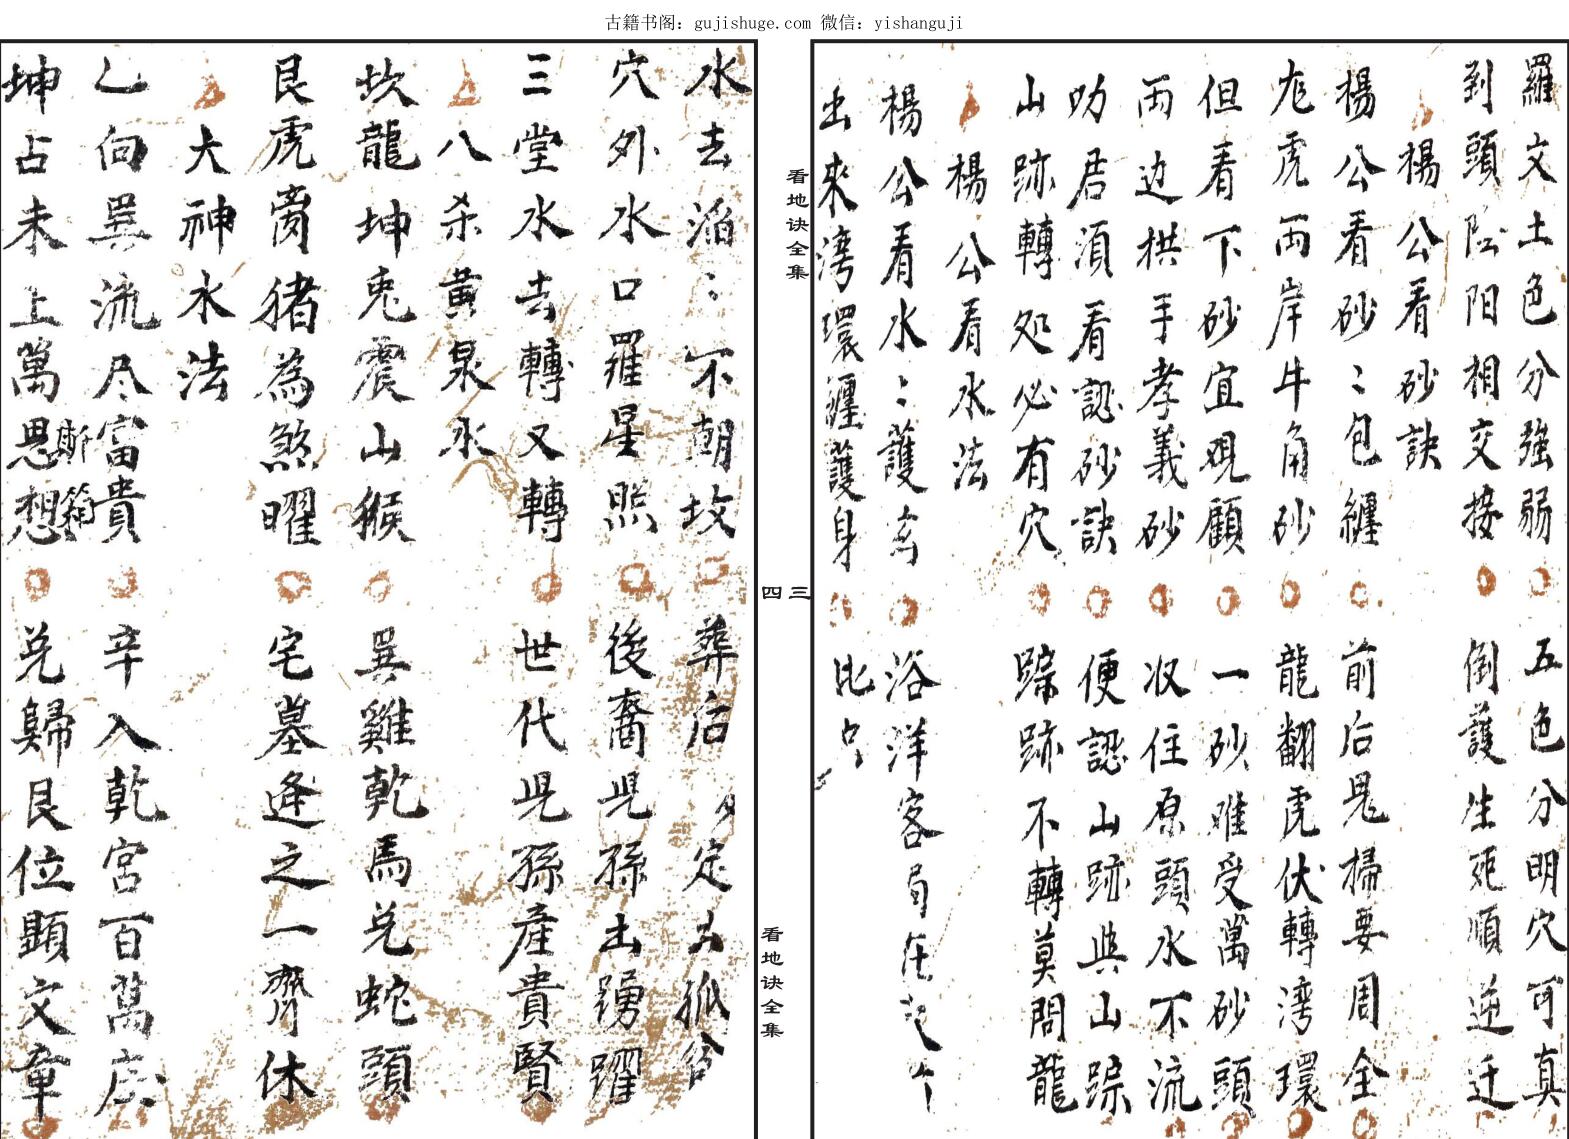 古籍书阁：gujishuge.com 微信：yishanguji
羅文土色分強弱 五色分明穴可真
到頭阴阳相交接 倒護生死順逆迁
楊公看砂訣
楊公看砂〻包纏 前后晃掃要周全
龙虎両岸牛角砂 龍翻虎伏轉湾環
但看下砂宜观顧 一砂难受萬砂頭
両边拱手孝義砂 収住原頭水不流
叻居湏看認砂訣 便認山跡與山踪
山跡轉処必有穴 踪跡不轉莫問龍
楊公看水法
楊公看水〻護 浴洋客局在
出來湾環纏護身 比
看地诀全集
三
四
看地诀全集
水去滔〻不朝坟 葬后定出孤
穴外水口羅星照 後裔児孫出踴躍
三堂水去轉又轉 世代児孫産貴賢
八杀黄泉水
坎龍坤兎震山猴 巽雞乾馬兑蛇頭
艮虎离猪為煞曜 宅墓逢之一齊休
大神水法
乙向巽流尽富貴 辛入乾宮百萬庄
坤占未上萬思想 兑歸艮位顯文章
斯箱